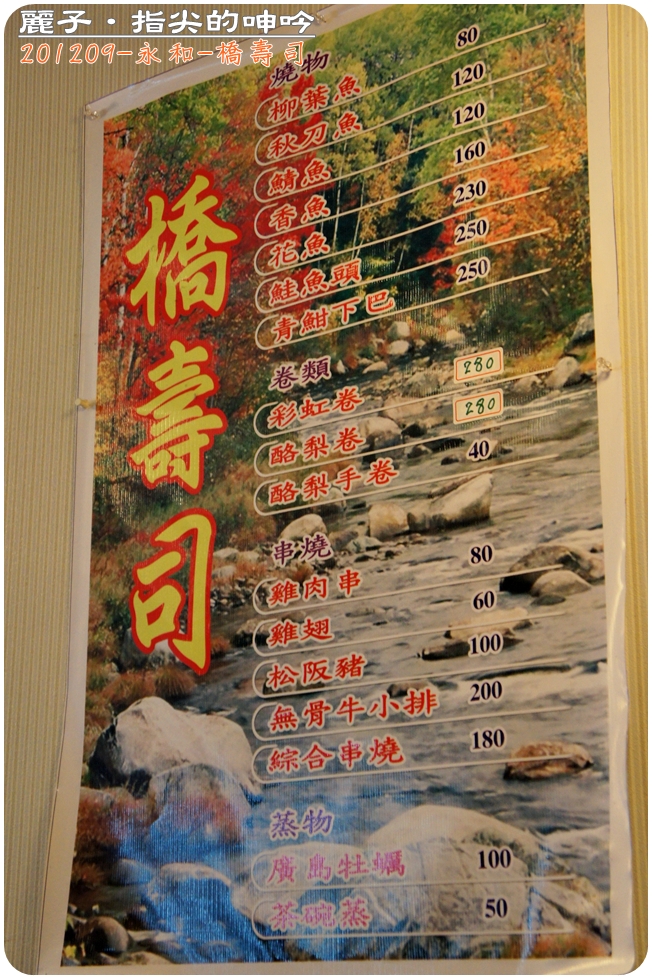 麗子・指尖的呻吟
201209-永和-橋壽司
橋壽司
燒物
柳葉魚 80
秋刀魚 120
鯖魚 120
香魚 160
花魚 230
鮭魚頭 250
青魽下巴 250
卷類
彩虹卷 280
酪梨卷 280
酪梨手卷 40
串燒
雞肉串 80
雞翅 60
松阪豬 100
無骨牛小排 200
綜合串燒 180
蒸物
廣島牡蠣 100
茶碗蒸 50